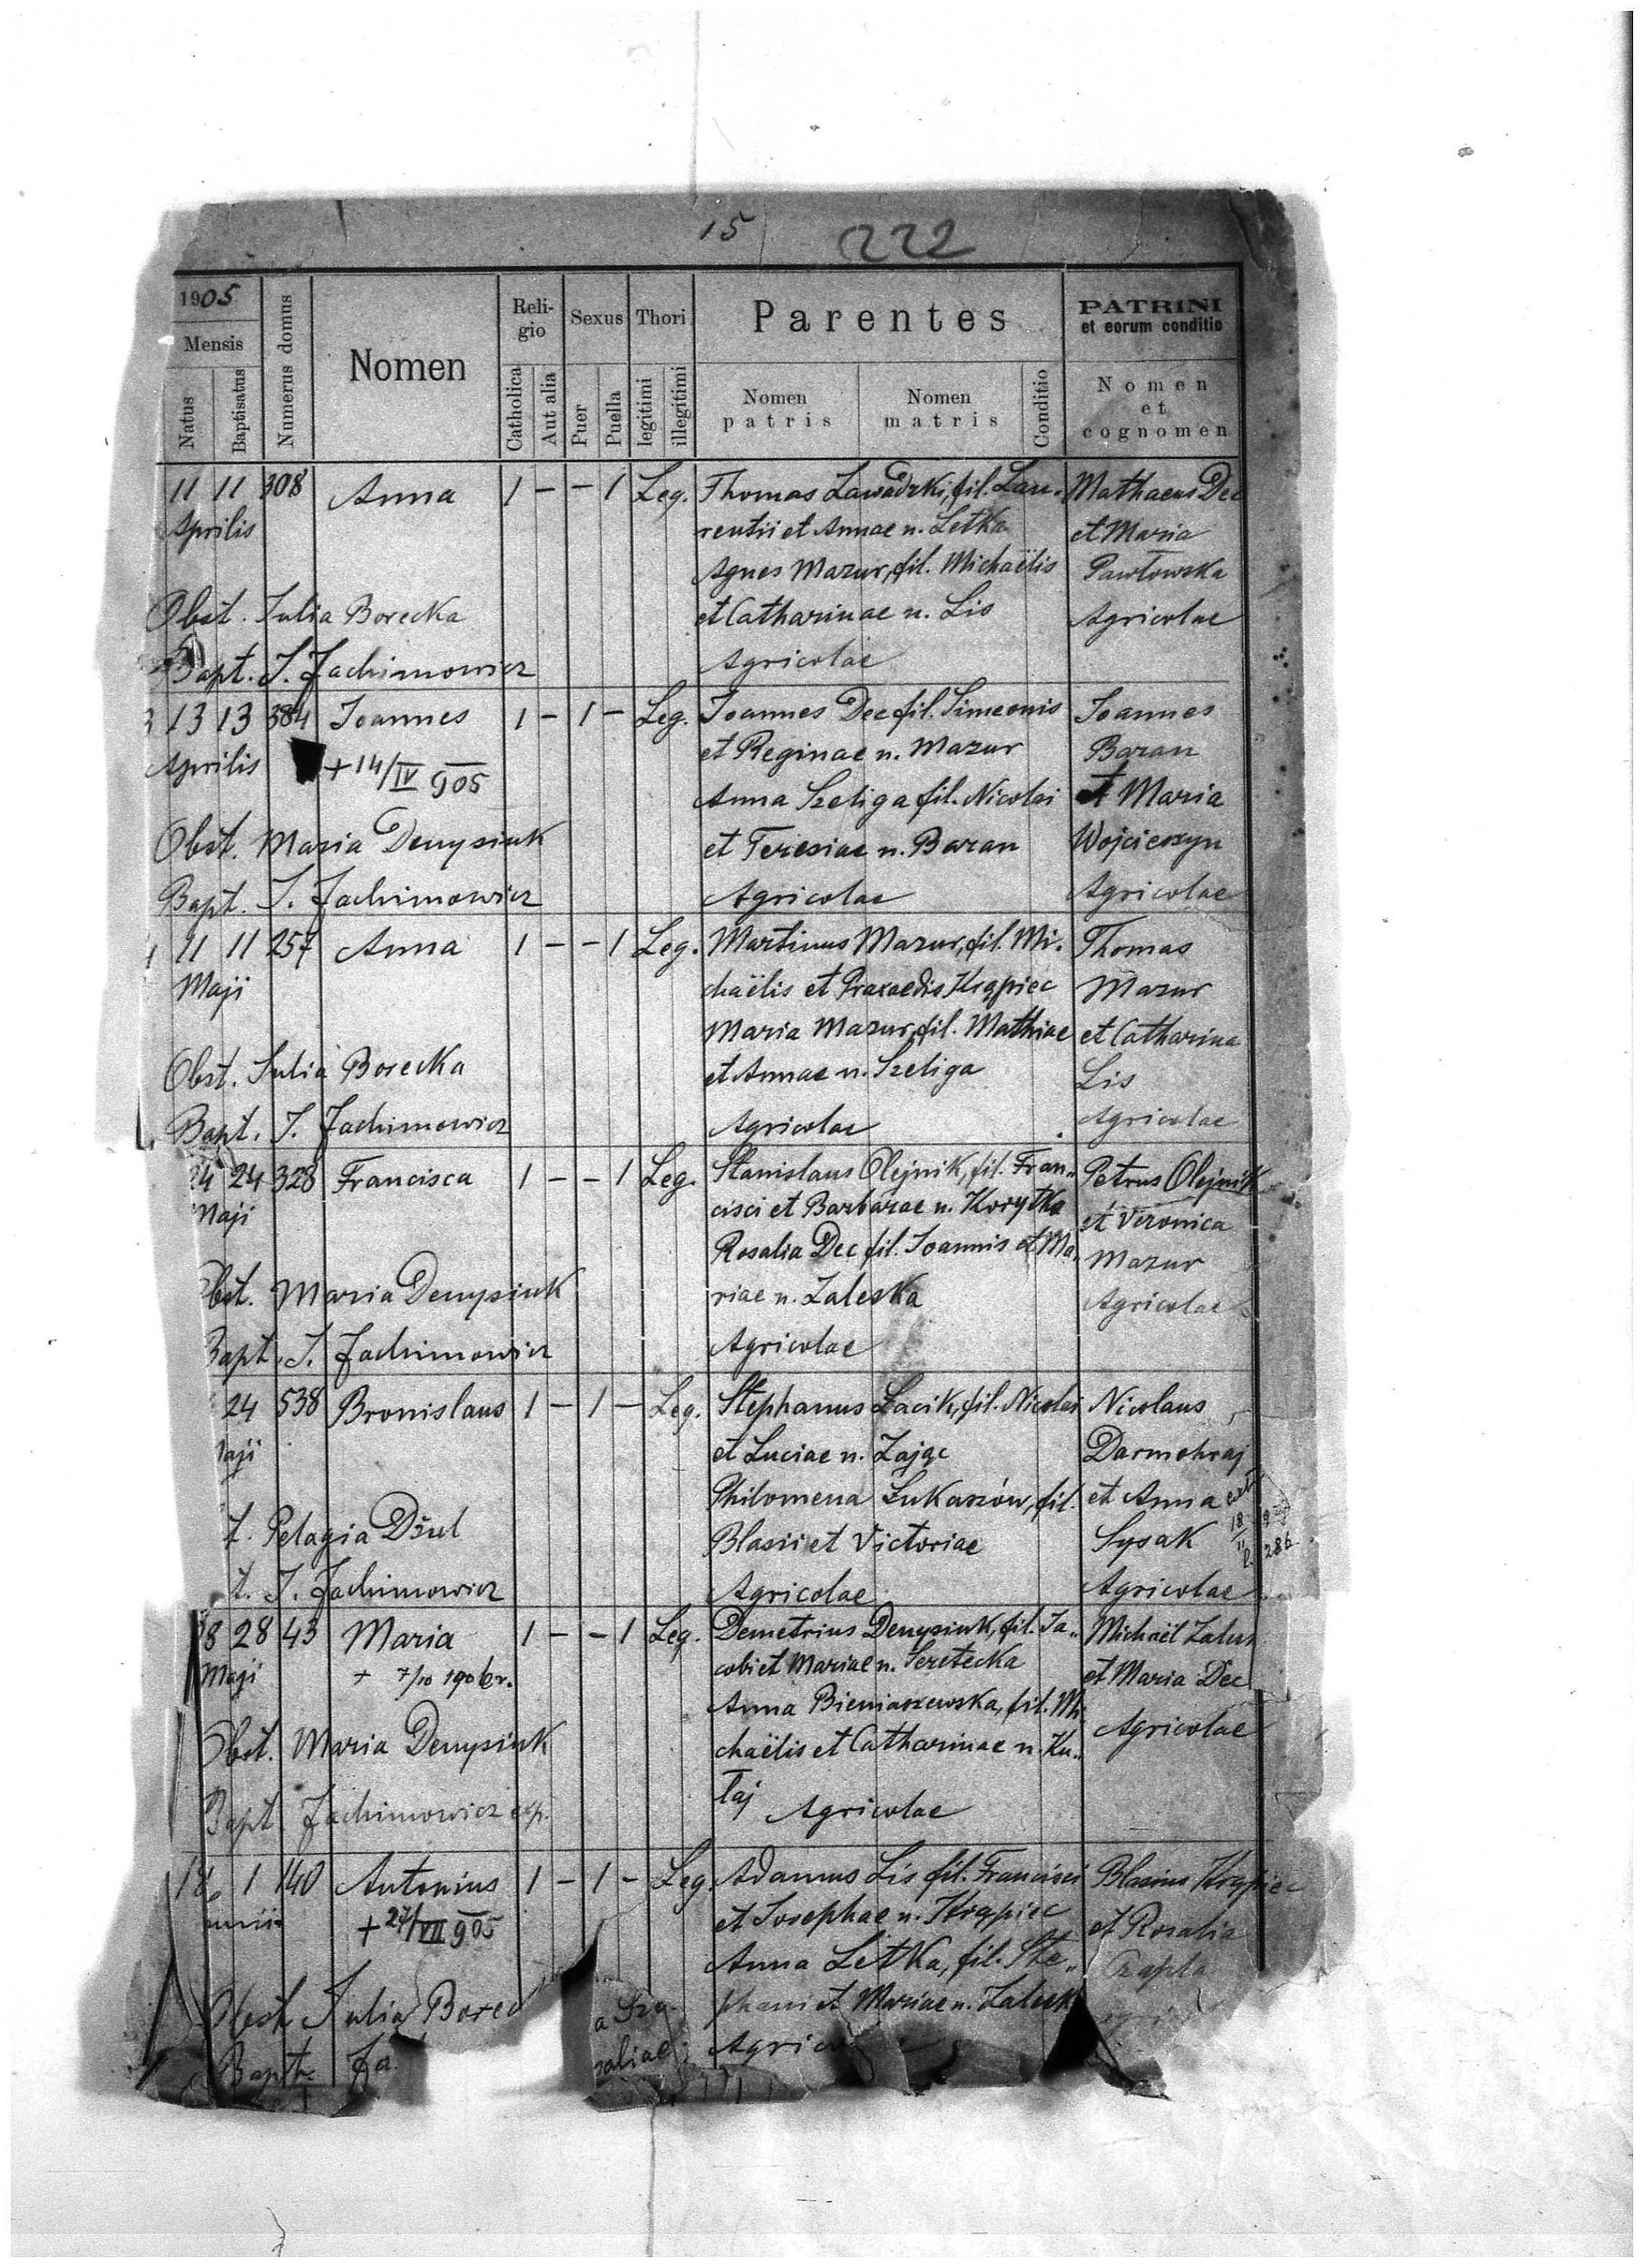 15 222
1905
Mensis
Natus
Baptisatus
Numerus domus
Nomen
Reli-
gio
Catholica
Aut alia
Sexus
Puer
Puella
Thori
legitimi
illegitimi
Parentes
Nomen
patris
Nomen
matris
Conditio
PATRINI
et eorum conditio
Nomen
et
cognomen
11 11 308 Anna 1 - - 1 Leg. Thomas Zawadzki, fil. Lau- Mathaeus Dec
Aprilis rentii et Annae n. Letka et Maria
Agnes Mazur, fil. Michaëlis Pawłowska
Obst. Julia Borecka et Catharinae n. Lis Agricolae
Bapt. J. Jachimowicz Agricolae
13 13 384 Joannes 1 - 1 - Leg. Joannes Dec fil. Simeonis Joannes
et Reginae n. Mazur Baran
Aprilis +14/IV 905
Anna Szeliga fil. Nicolai et Maria
Obst. Maria Denysiuk et Teresiae n. Baran Wojcieszyn
Bapt. J. Jachimowicz Agricolae Agricolae
11 11 257 Anna 1 - - 1 Leg. Martinus Mazur, fil. Mi- Thomas
Maji chaëlis et Praxaedis Krąpiec Mazur
Maria Mazur, fil. Mathiae et Catharina
Obst. Julia Borecka et Annae n. Szeliga Lis
Bapt. J. Jachimowicz Agricolae Agricolae
24 24 328 Francisca 1 - - 1 Leg. Stanislaus Olejnik, fil. Fran„ Petrus Olejnik
Maji cisci et Barbarae n. Korytka et Veronica
Rosalia Dec fil. Joannis et Ma. Mazur
Obst. Maria Denysiuk riae n. Zaleska Agricolae
Bapt. J. Jachimowicz Agricolae
24 538 Bronislaus 1 - 1 - Leg. Stephanus Łacik, fil. Nicolai Nicolaus
aji et Luciae n. Zając Darmohraj
Philomena Łukaszów, fil. et Anna
t. Pelagia Dżul Blasii et Victoriae Sysak
t. J. Jachimowicz Agricolae Agricolae
18 9
II
p. 286
8 28 43 Maria 1 - - 1 Leg. Demetrius Denysiuk, fil. Ja„ Michaël Zalus
Maji + 7/10 1906 r. cobi et Mariae n. Seretecka et Maria Dec
Anna Bieniaszewska, fil. Mi
Obst. Maria Denysiuk chaëlis et Catharinae n. Ku„ Agricolae
Bapt. Jachimowicz exp. taj Agricolae
1 140 Antonius 1 - 1 - Leg. Adamus Lis fil. Francisci Blasius Krąpiec
unii +27/VII 905 et Josephae n. Krąpiec et Rosalia
Anna Letka, fil. Ste„ Czapla
Obst. Julia Borec phani et Mariae n. Zalesk
Bapt. Ja Agrico
a Szg
saliae